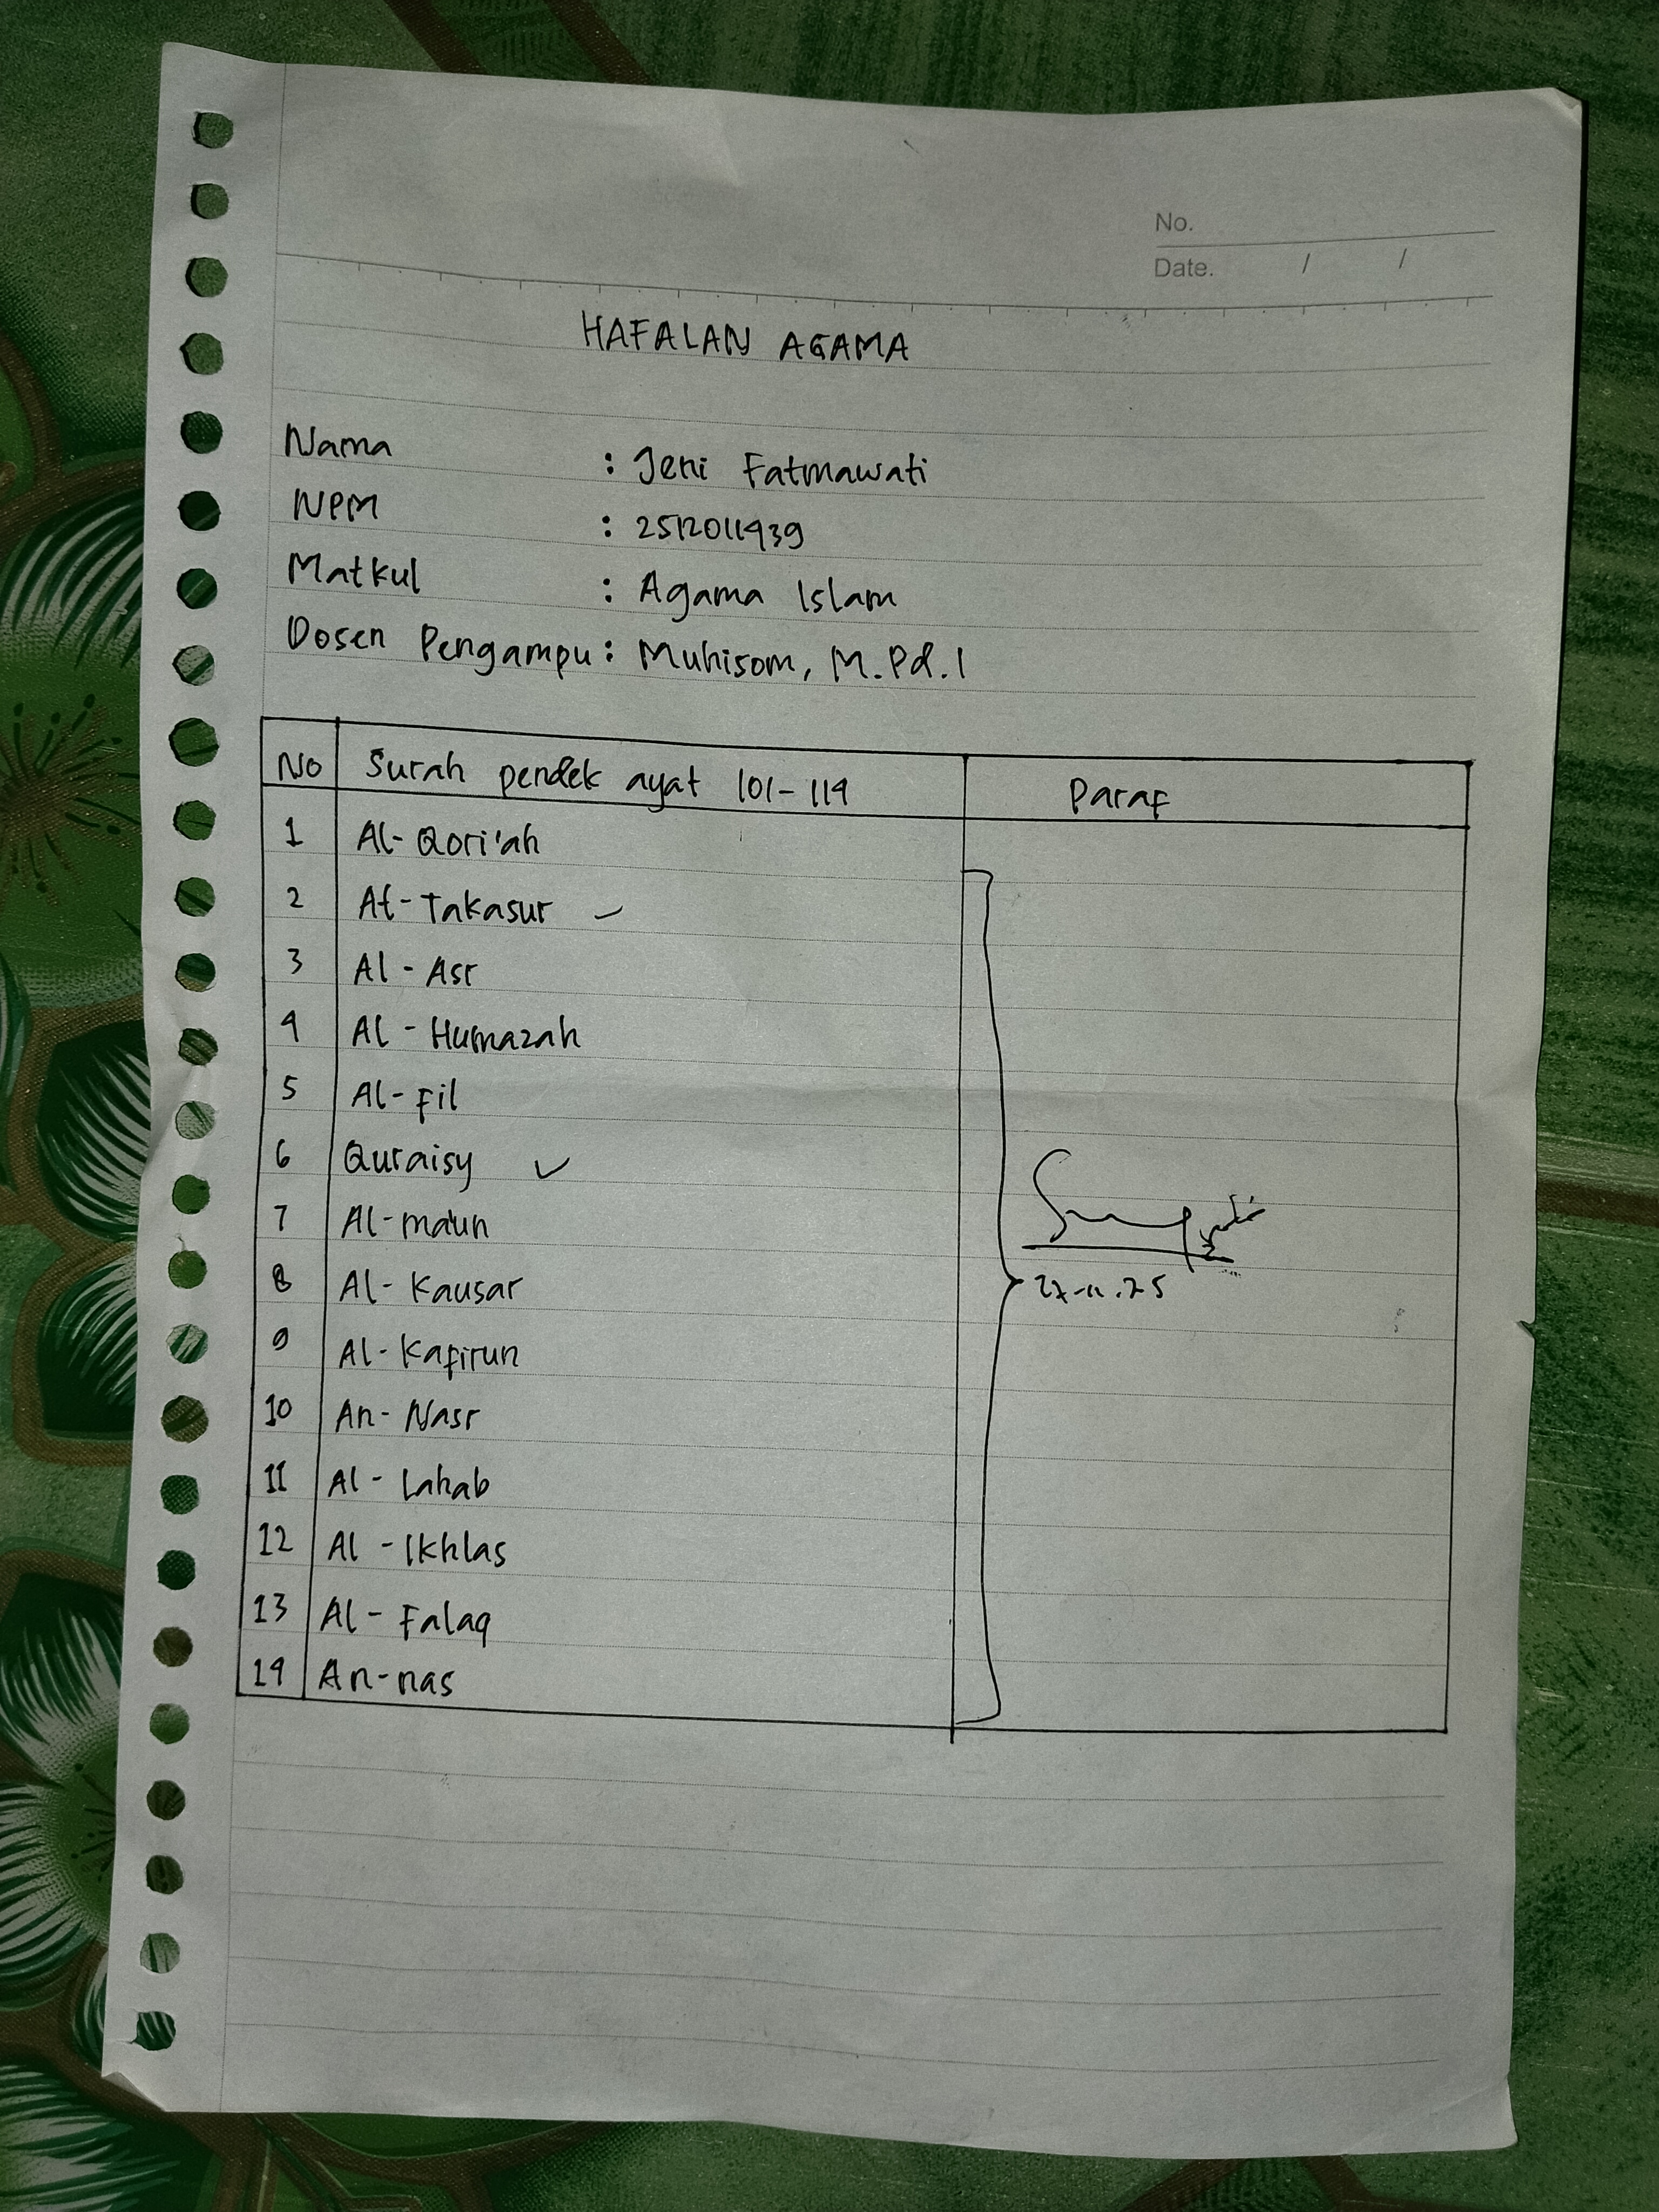 No.
Date. / /
HAFALAN AGAMA
Nama : Jeni Fatmawati
NPM : 2512011939
Matkul : Agama Islam
Dosen Pengampu : Muhisom, M.Pd.I
No Surah pendek ayat 101-114 Paraf
1 Al-Qori'ah
2 At-Takasur
3 Al-Asr
4 Al-Humazah
5 Al-Fil
6 Quraisy
7 Al-ma'un
8 Al-Kausar
9 Al-Kafirun
10 An-Nasr
11 Al-Lahab
12 Al-Ikhlas
13 Al-Falaq
14 An-nas